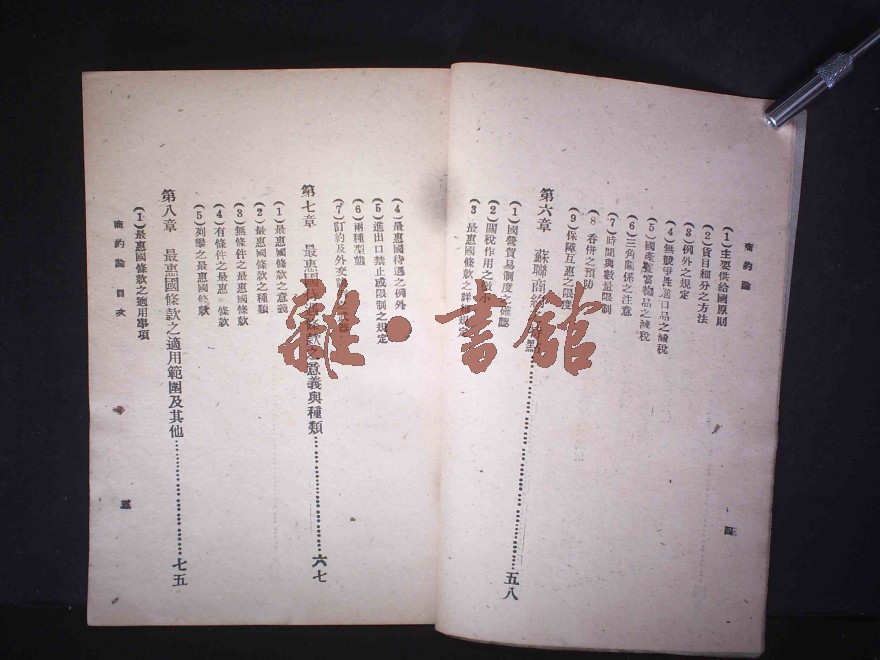 商約論
(1)主要供給國原則
(2)貨目細分之方法
(3)例外之規定
(4)無競爭性進口品之減稅
(5)國產豐富物品之減稅
(6)三角關係之注意
(7)時間與數量限制
(8)吞併之預防
(9)保障互惠之限度
第六章 蘇聯商約之特點……五八
(1)國營貿易制度之確認
(2)關稅作用之縮小
(3)最惠國條款之詳細規定
四
(4)最惠國待遇之例外
(5)進出口禁止或限制之規定
(6)兩種型態
(7)訂約及外交
第七章 最惠國待遇條款之意義與種類……六七
(1)最惠國條款之意義
(2)最惠國條款之種類
(3)無條件之最惠國條款
(4)有條件之最惠國條款
(5)列舉之最惠國條款
第八章 最惠國條款之適用範圍及其他……七五
(1)最惠國條款之適用事項
商約論 目次
五
雜·書館